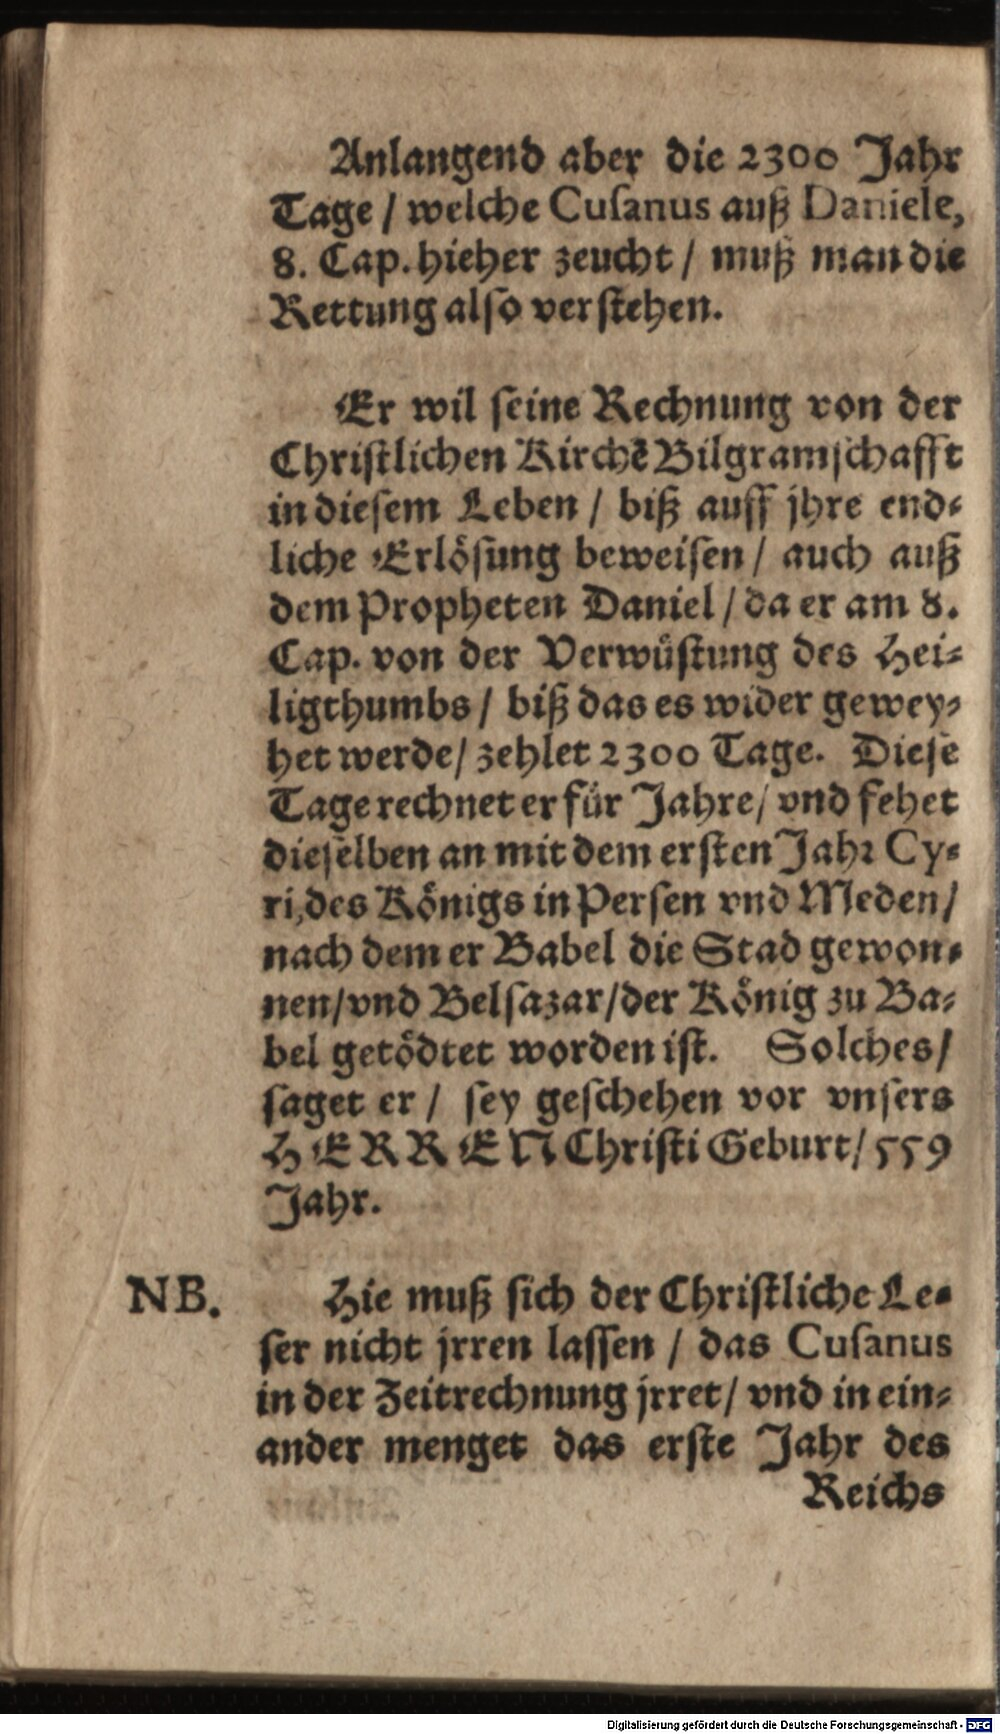 Anlangend aber die 2300 Jahr
Tage / welche Cuſanus auß Daniele,
8. Cap. hieher zeucht / muß man die
Rettung alſo verſtehen.
Er wil ſeine Rechnung von der
Chriſtlichen Kirchē Bilgramſchafft
in dieſem Leben / biß auff jhre end⸗
liche Erlöſung beweiſen / auch auß
dem Propheten Daniel / da er am 8.
Cap. von der Verwüſtung des Hei⸗
ligthumbs / biß das es wider gewey⸗
het werde / zehlet 2300 Tage. Dieſe
Tage rechnet er für Jahre / vnd fehet
dieſelben an mit dem erſten Jahr Cy⸗
ri, des Königs in Perſen vnd Meden /
nach dem er Babel die Stad gewon⸗
nen / vnd Belſazar / der König zu Ba⸗
bel getödtet worden iſt. Solches /
ſaget er / ſey geſchehen vor vnſers
HERREN Chriſti Geburt / 559
Jahr.
NB. Hie muß ſich der Chriſtliche Le⸗
ſer nicht jrren laſſen / das Cuſanus
in der Zeitrechnung jrret / vnd in ein⸗
ander menget das erſte Jahr des
Reichs
Digitalisierung gefördert durch die Deutsche Forschungsgemeinschaft - DFG